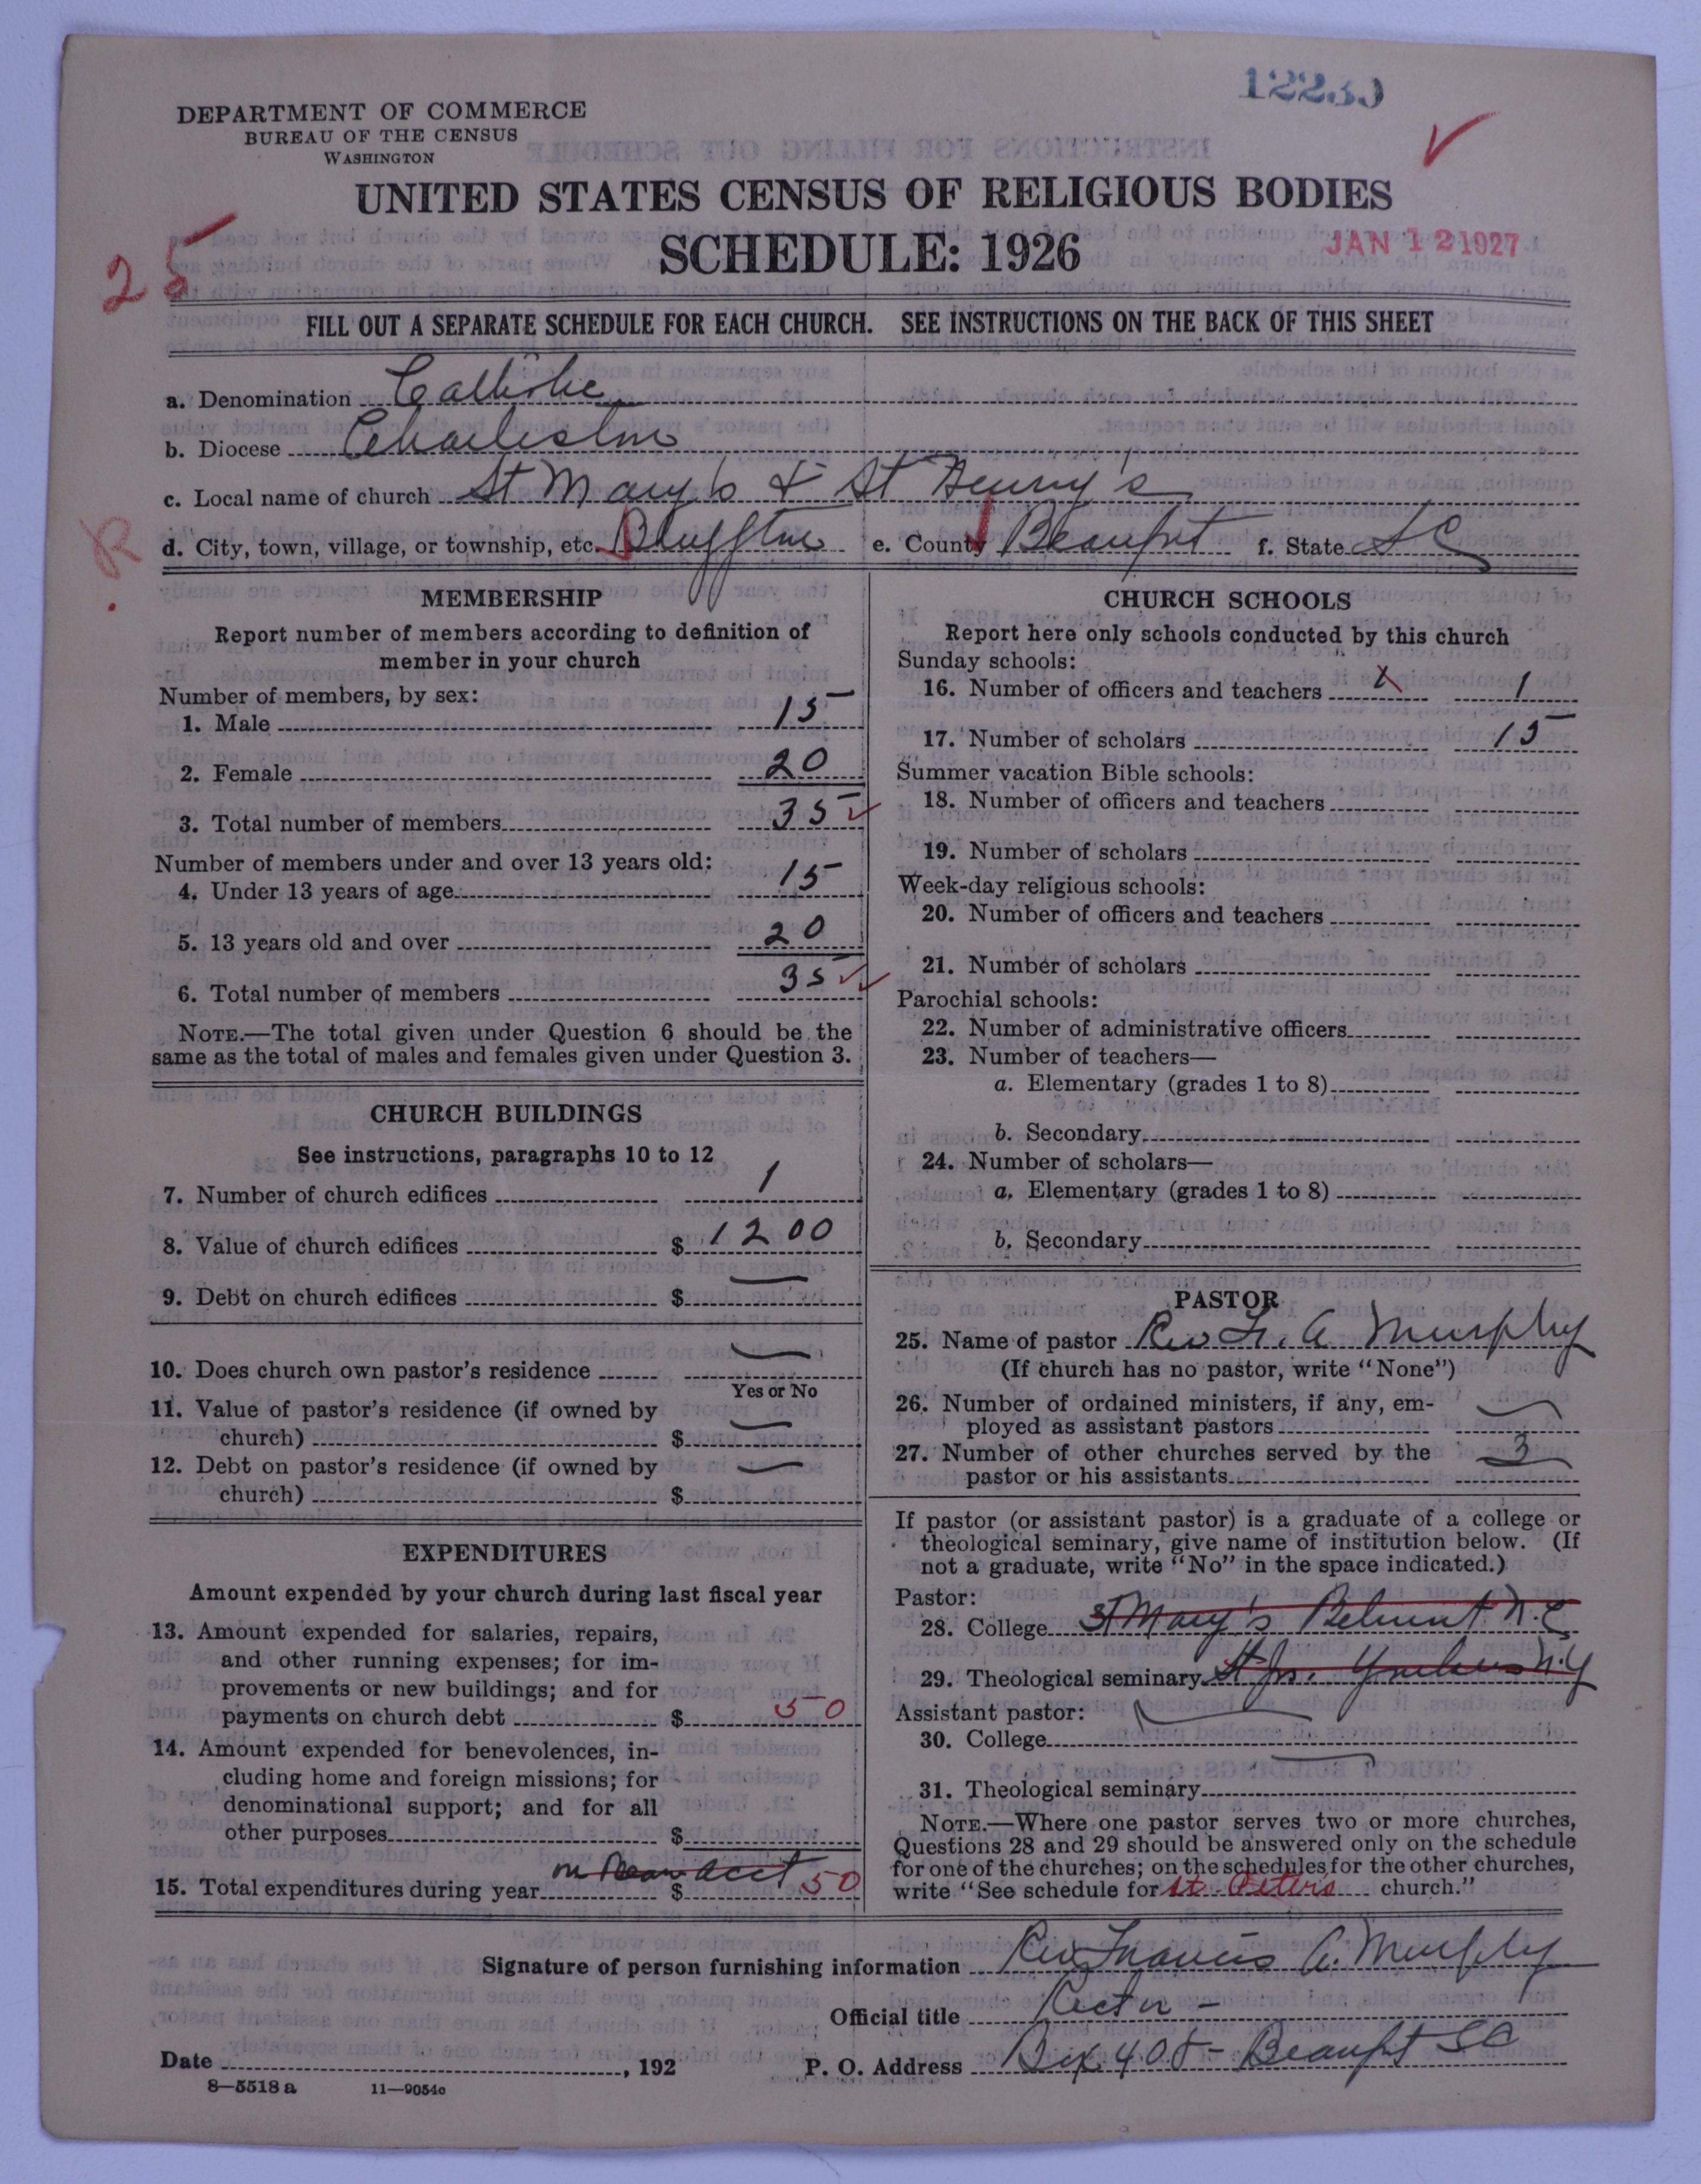 12230
DEPARTMENT OF COMMERCE
BUREAU OF THE CENSUS
WASHINGTON
UNITED STATES CENSUS OF RELIGIOUS BODIES
SCHEDULE: 1926
JAN 12 1927
25
FILL OUT A SEPARATE SCHEDULE FOR EACH CHURCH. SEE INSTRUCTIONS ON THE BACK OF THIS SHEET
a. Denomination Catholic
b. Diocese Charleston
c. Local name of church St Mary's & St Henry's
R.
d. City, town, village, or township, etc. Bluffton e. County Beaufort f. State S C
MEMBERSHIP
Report number of members according to definition of
member in your church
Number of members, by sex:
1. Male 15
2. Female 20
3. Total number of members 35
Number of members under and over 13 years old:
4. Under 13 years of age 15
5. 13 years old and over 20
6. Total number of members 35
NOTE.—The total given under Question 6 should be the
same as the total of males and females given under Question 3.
CHURCH BUILDINGS
See instructions, paragraphs 10 to 12
7. Number of church edifices 1
8. Value of church edifices $ 1200
9. Debt on church edifices $ —
10. Does church own pastor's residence —
Yes or No
11. Value of pastor's residence (if owned by
church) $ —
12. Debt on pastor's residence (if owned by
church) $ —
EXPENDITURES
Amount expended by your church during last fiscal year
13. Amount expended for salaries, repairs,
and other running expenses; for im-
provements or new buildings; and for
payments on church debt $ 50
14. Amount expended for benevolences, in-
cluding home and foreign missions; for
denominational support; and for all
other purposes $
15. Total expenditures during year $ acct 50
CHURCH SCHOOLS
Report here only schools conducted by this church
Sunday schools:
16. Number of officers and teachers 1
17. Number of scholars 15
Summer vacation Bible schools:
18. Number of officers and teachers
19. Number of scholars
Week-day religious schools:
20. Number of officers and teachers
21. Number of scholars
Parochial schools:
22. Number of administrative officers
23. Number of teachers—
a. Elementary (grades 1 to 8)
b. Secondary
24. Number of scholars—
a. Elementary (grades 1 to 8)
b. Secondary
PASTOR
25. Name of pastor Rev Fr. A Murphy
(If church has no pastor, write "None")
26. Number of ordained ministers, if any, em-
ployed as assistant pastors —
27. Number of other churches served by the
pastor or his assistants 3
If pastor (or assistant pastor) is a graduate of a college or
theological seminary, give name of institution below. (If
not a graduate, write "No" in the space indicated.)
Pastor:
28. College St Mary's Belmont N.C
29. Theological seminary St Jos. Yonkers N.Y
Assistant pastor:
30. College
31. Theological seminary
NOTE.—Where one pastor serves two or more churches,
Questions 28 and 29 should be answered only on the schedule
for one of the churches; on the schedules for the other churches,
write "See schedule for St. Peters church."
Signature of person furnishing information Rev Francis A. Murphy
Official title Rector -
Date , 192 P. O. Address Box 408 - Beaufort SC
8—5518 a 11—9054c